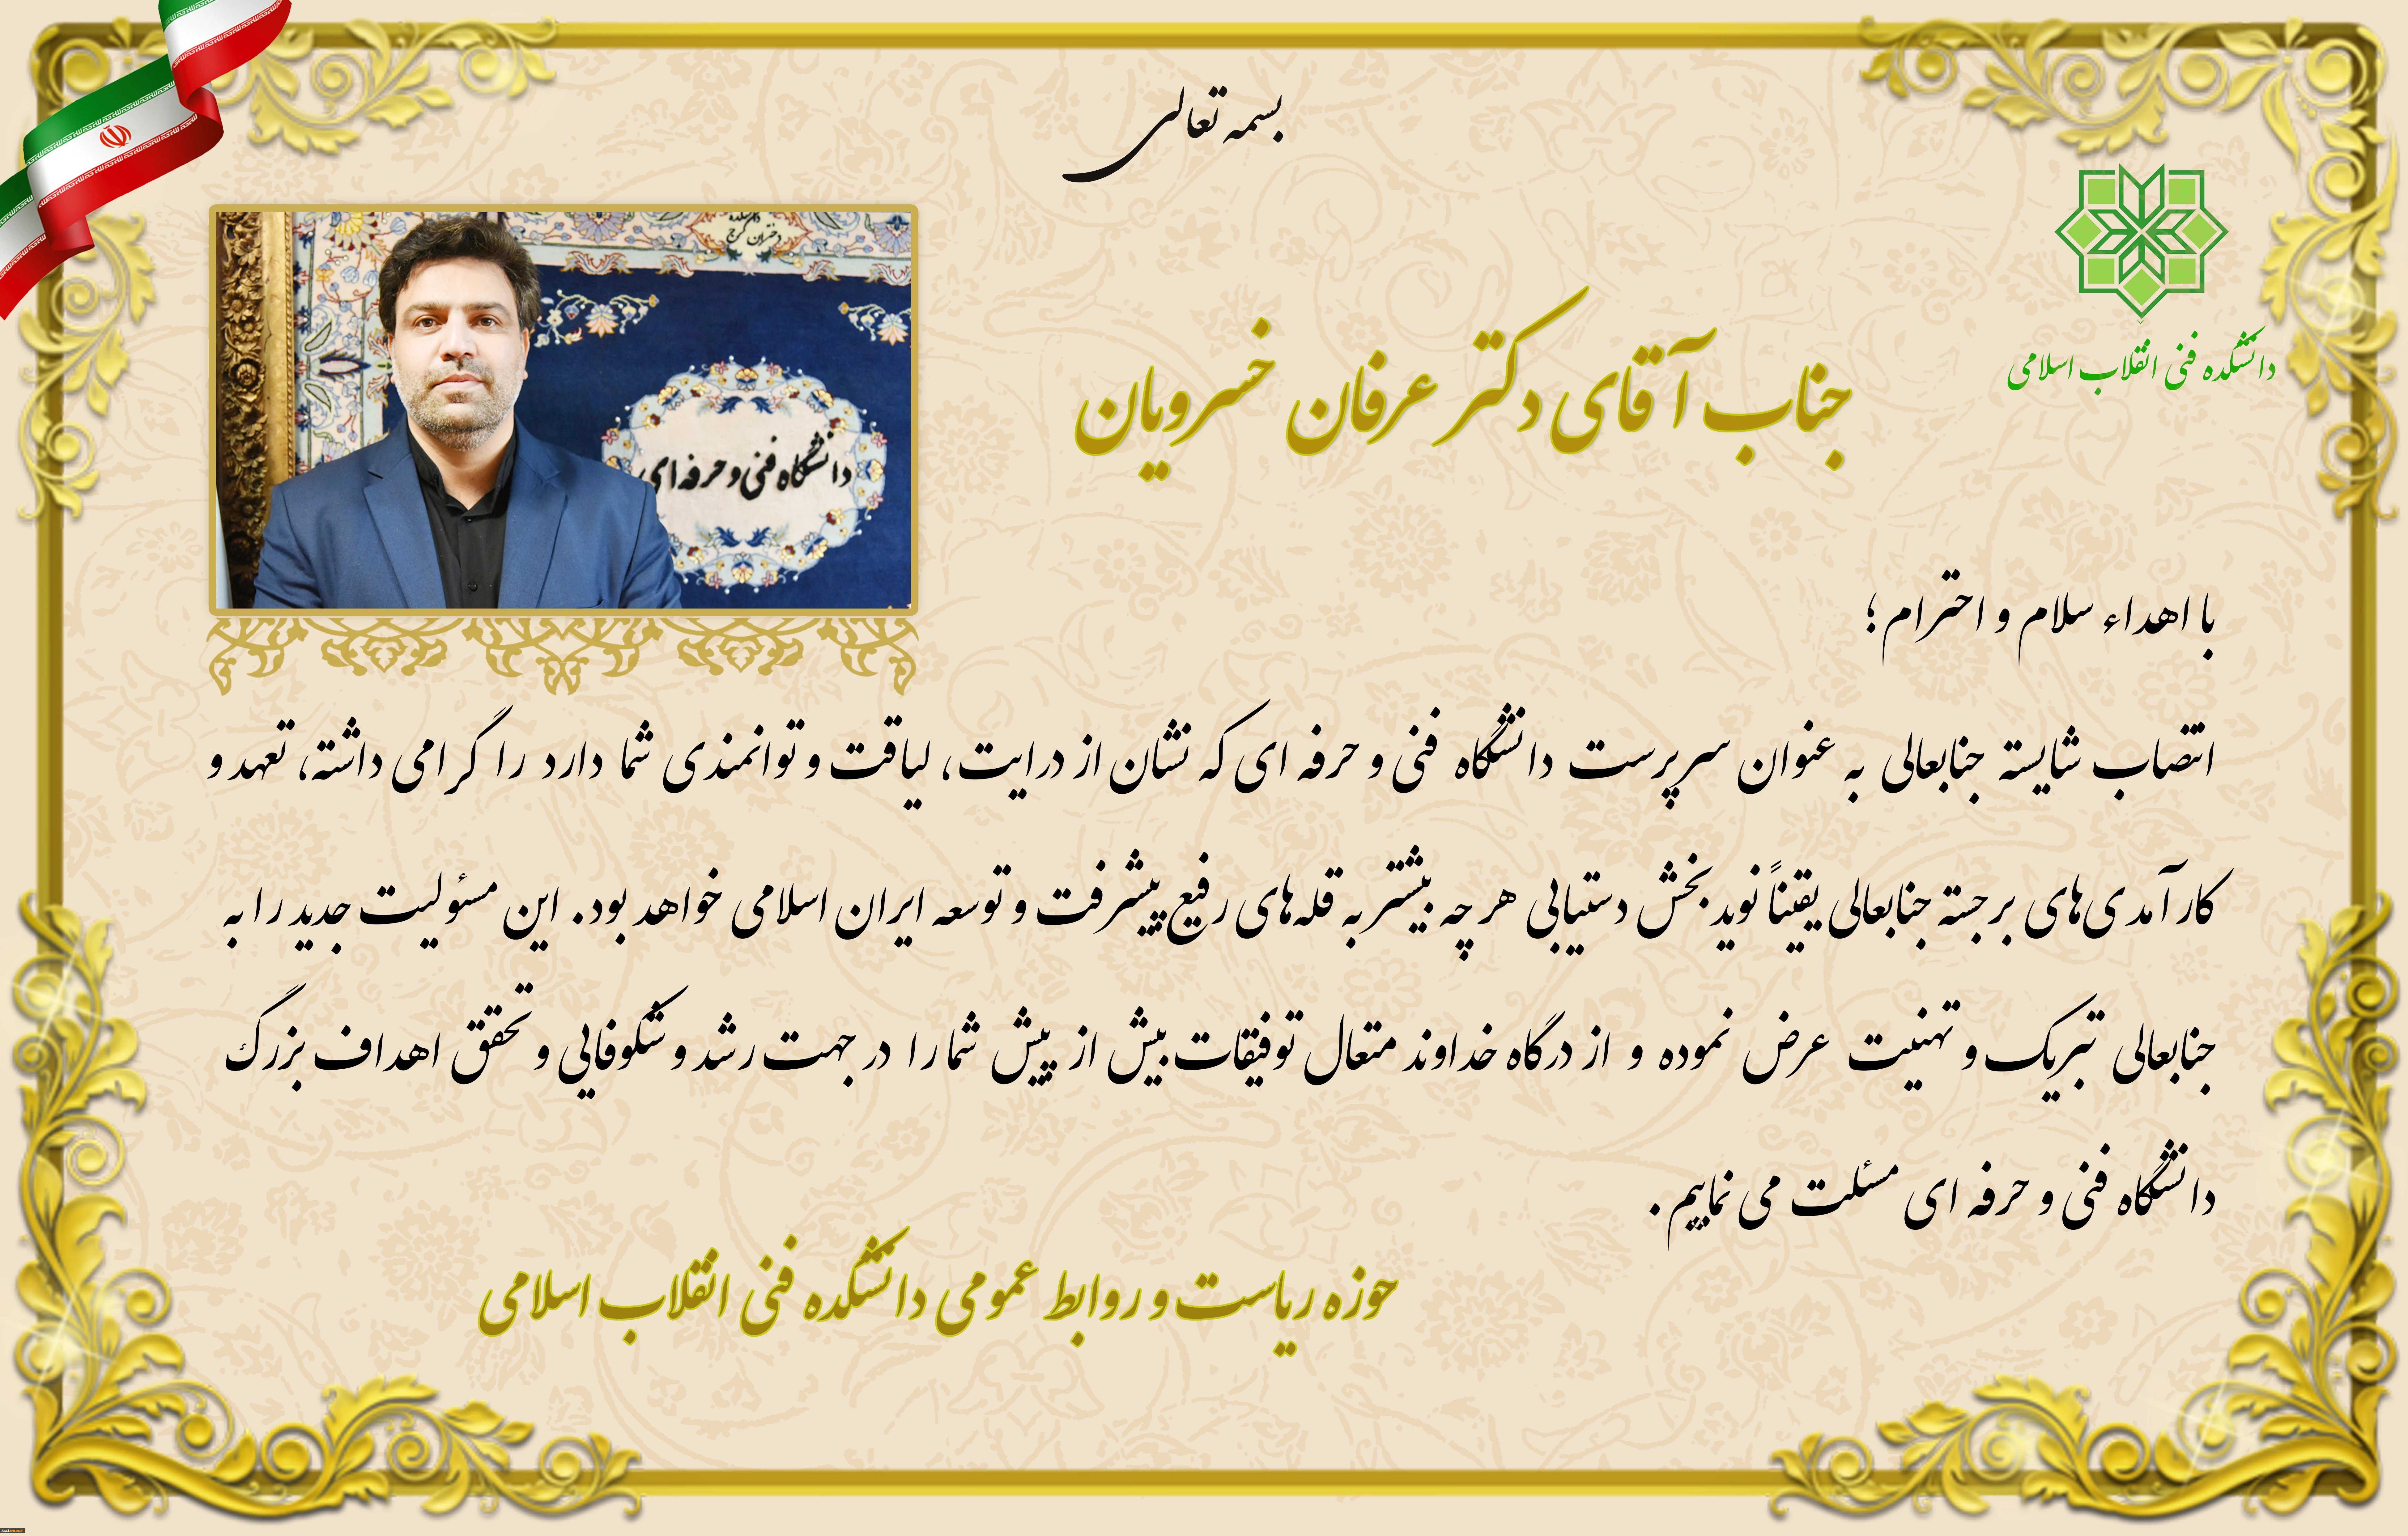 بسمه تعالی
دانشکده فنی انقلاب اسلامی
جناب آقای دکتر عرفان خسرویان
دختران کرج
دانشگاه فنی و حرفه ای
با اهداء سلام و احترام ؛
انتصاب شایسته جنابعالی به عنوان سرپرست دانشگاه فنی و حرفه ای که نشان از درایت، لیاقت و توانمندی شما دارد را گرامی داشته، تعهد و
کارآمدی‌های برجسته جنابعالی یقیناً نوید بخش دستیابی هر چه بیشتر به قله‌های رفیع پیشرفت و توسعه ایران اسلامی خواهد بود. این مسئولیت جدید را به
جنابعالی تبریک و تهنیت عرض نموده و از درگاه خداوند متعال توفیقات بیش از پیش شما را در جهت رشد و شکوفایی و تحقق اهداف بزرگ
دانشگاه فنی و حرفه ای مسئلت می نماییم .
حوزه ریاست و روابط عمومی دانشکده فنی انقلاب اسلامی